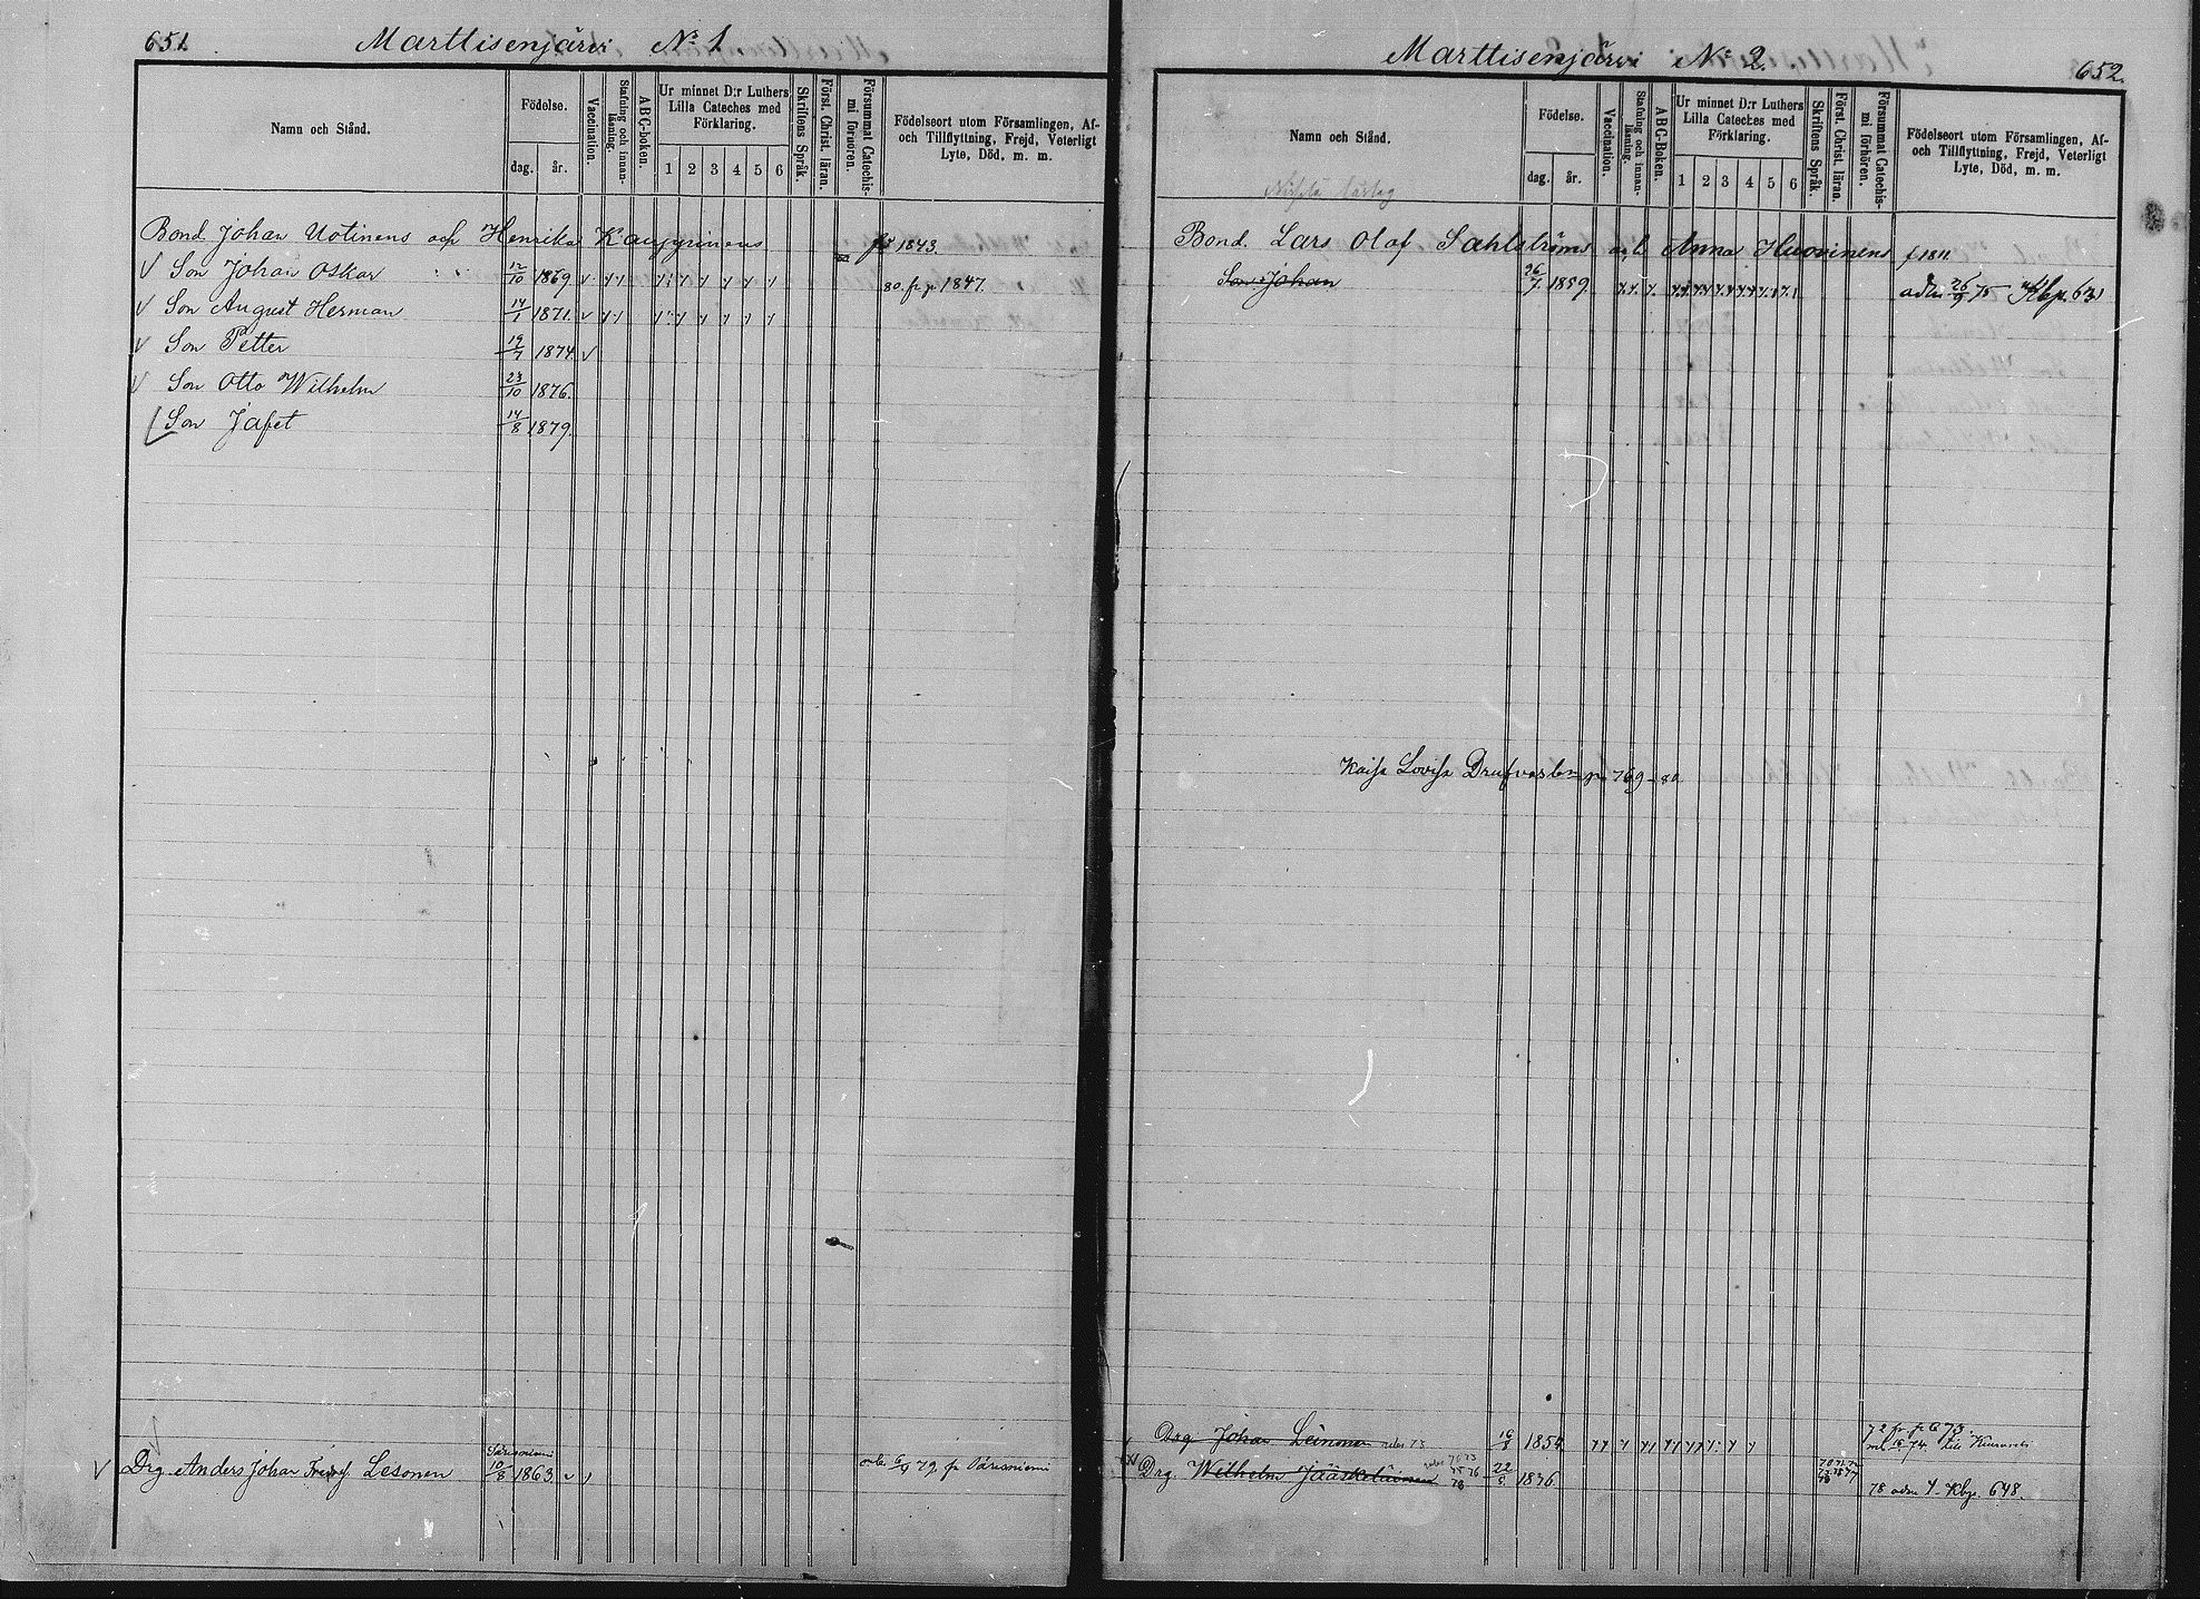 651.
Marttisenjärvi No 1.
Namn och Stånd.
Födelse.
dag. år.
Vaccination.
Stafning och innan-läsning.
ABC-boken.
Ur minnet D:r Luthers
Lilla Cateches med
Förklaring.
1 2 3 4 5 6
Skriftens Språk.
Först. Christ. läran.
Försummat Catechis-
mi förhören.
Födelseort utom Församlingen, Af-
och Tillflyttning, Frejd, Veterligt
Lyte, Död, m. m.
Bond. Johan Uotinens och Henrika Kauppinens 1843.
Son Johan Oskar 12/10 1869 80. fr p 1847.
Son August Herman 14/1 1871.
Son Petter 19/7 1874.
Son Otto Wilhelm 23/10 1876.
Son Jafet 14/8 1879.
Drg Anders Johan Lesonen 10/8 1863.
Marttisenjärvi No 2.
652.
Namn och Stånd.
Födelse.
dag. år.
Vaccination.
Stafning och innan-läsning.
ABC-Boken.
Ur minnet D:r Luthers
Lilla Cateches med
Förklaring.
1 2 3 4 5 6
Skriftens Språk.
Först. Christ. läran.
Försummat Catechis-
mi förhören.
Födelseort utom Församlingen, Af-
och Tillflyttning, Frejd, Veterligt
Lyte, Död, m. m.
Bond. Lars Olof Sahlströms och Anna Huovinens f 1811
Son Johan 26/7 1859.
Kaisa Lovisa 769-80
Drg Johan Leinonen 1854
Drg. Wilhelm Jääskeläinen 22/5 1836.
78 Kbp. 648.